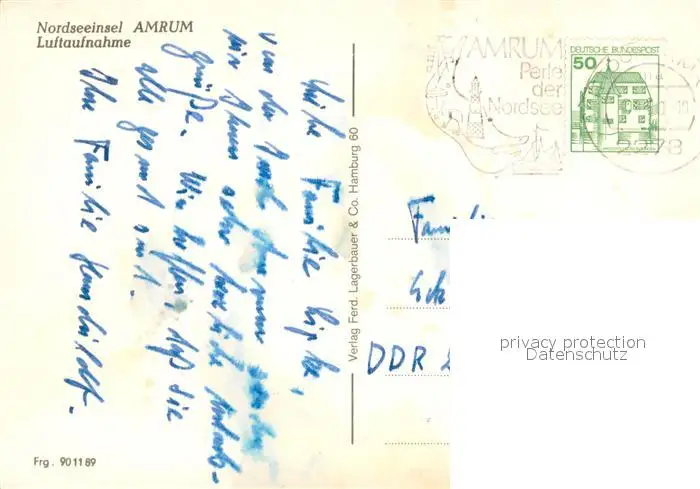 Nordseeinsel AMRUM
Luftaufnahme
Liebe Familie
von der Insel Amrum senden
wir Ihnen sehr herzliche Urlaubs-
grüße. Wir hoffen, daß Sie
alle gesund sind.
Ihre Familie
Verlag Ferd. Lagerbauer & Co. Hamburg 60
Frg. 901189
AMRUM
Perle
der
Nordsee
DEUTSCHE BUNDESPOST
50
2278
Familie
DDR
privacy protection
Datenschutz